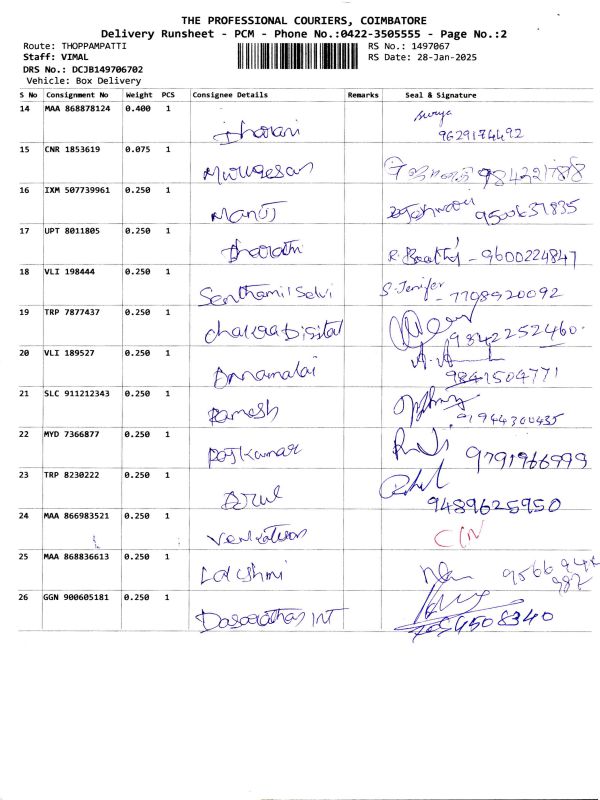 THE PROFESSIONAL COURIERS, COIMBATORE
Delivery Runsheet - PCM - Phone No.:0422-3505555 - Page No.:2
Route: THOPPAMPATTI RS No.: 1497067
Staff: VIMAL RS Date: 28-Jan-2025
DRS No.: DCJB149706702
Vehicle: Box Delivery
S No Consignment No Weight PCS Consignee Details Remarks Seal & Signature
14 MAA 868878124 0.400 1 Dharani surya
9629174492
15 CNR 1853619 0.075 1 Murugesan
16 IXM 507739961 0.250 1 Manoj
17 UPT 8011805 0.250 1 Bharathi R. - 9600224847
18 VLI 198444 0.250 1 Senthamil Selvi S. Jenifer
- 7708920092
19 TRP 7877437 0.250 1 chakra Digital
9842252460
20 VLI 189527 0.250 1 Annamalai
9841504771
21 SLC 911212343 0.250 1 Ramesh
91944300435
22 MYD 7366877 0.250 1 Rajkumar
9791966999
23 TRP 8230222 0.250 1 Arul
9489625950
24 MAA 866983521 0.250 1
25 MAA 868836613 0.250 1 Lakshmi
26 GGN 900605181 0.250 1 Dasarathas INT